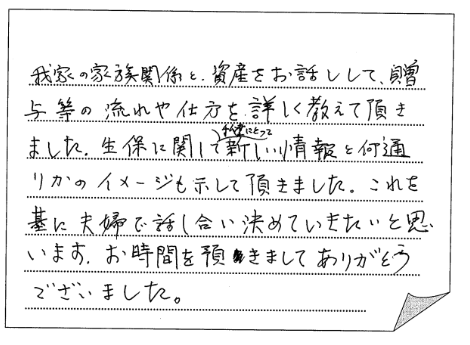 我家の家族関係と、資産をお話しして、贈
与等の流れや仕方を詳しく教えて頂き
ました。生保に関して私達にとって新しい情報と何通
りかのイメージも示して頂きました。これを
基に夫婦で話し合い決めていきたいと思
います。お時間を預きましてありがとう
ございました。